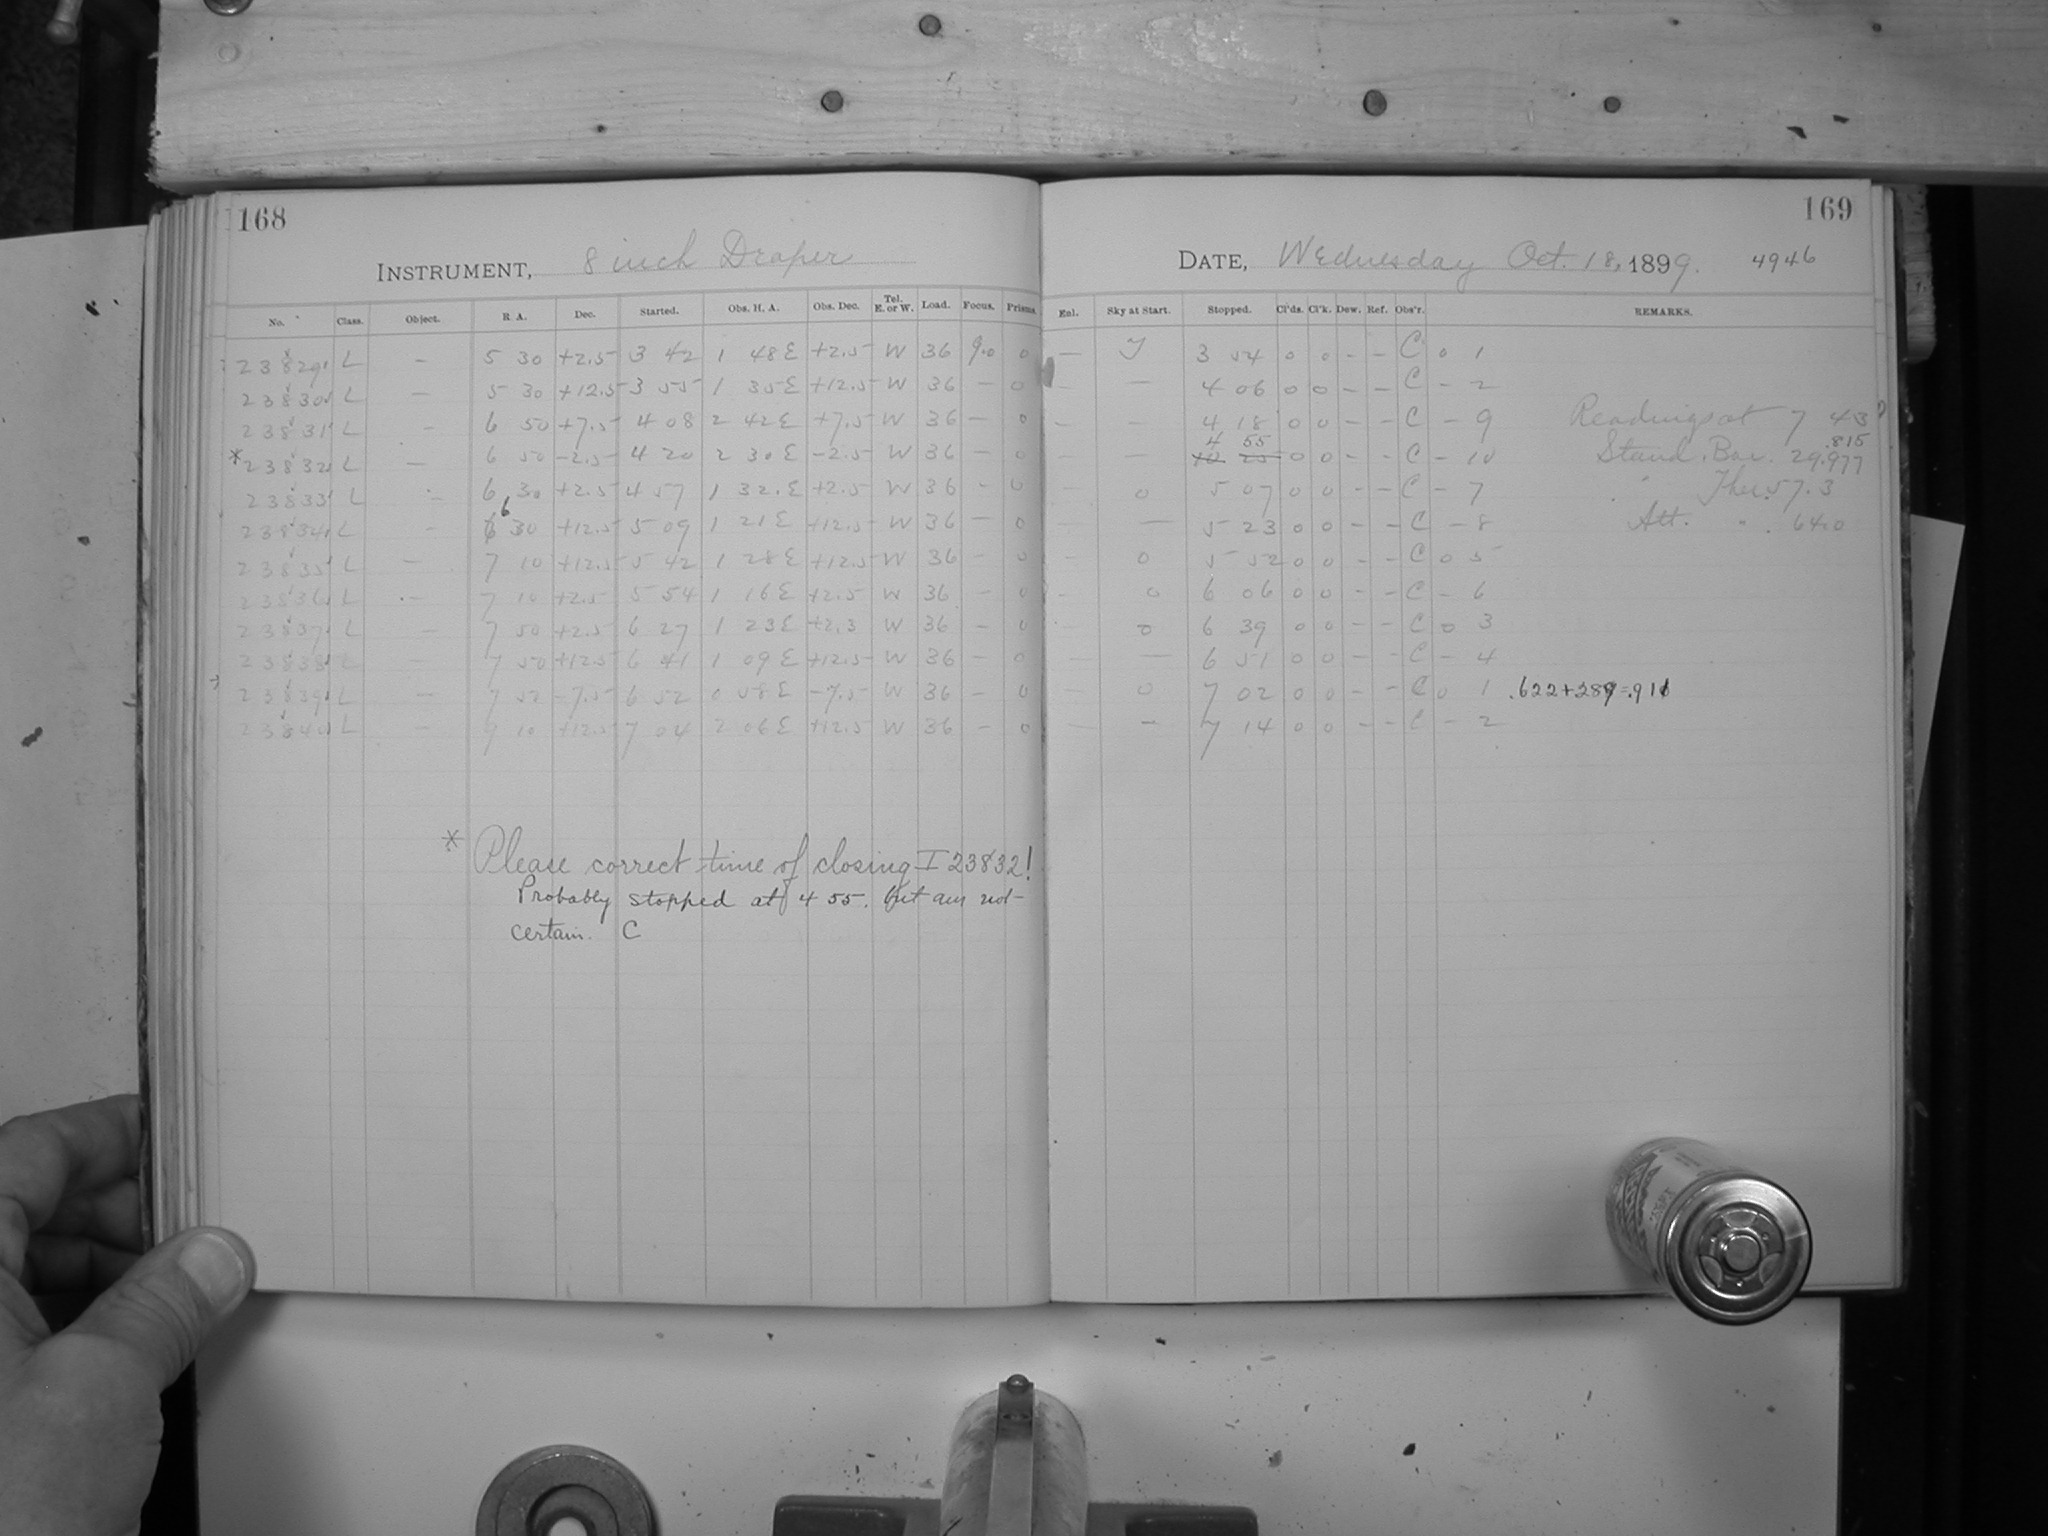 168
INSTRUMENT, 8 inch Draper
No. Class. Object. R A. Dec. Started. Obs. H. A. Obs. Dec. Tel. E. or W. Load. Focus. Prisms.
23829 L — 5 30 +2.5 3 42 1 48E +2.5 W 36 9.0 0
23830 L — 5 30 +12.5 3 55 1 35E +12.5 W 36 — 0
23831 L — 6 50 +7.5 4 08 2 42E +7.5 W 36 — 0
*23832 L — 6 50 -2.5 4 20 2 30E -2.5 W 36 — 0
23833 L — 6 30 +2.5 4 57 1 32.E +2.5 W 36 - 0
23834 L — 6 30 +12.5 5 09 1 21E +12.5 W 36 — 0
23835 L — 7 10 +12.5 5 42 1 28E +12.5 W 36 — 0
23836 L — 7 10 +2.5 5 54 1 16E +2.5 W 36 - 0
23837 L — 7 50 +2.5 6 27 1 23E +2.3 W 36 - 0
23838 L — 7 50 +12.5 6 41 1 09E +12.5 W 36 - 0
23839 L — 7 52 -7.5 6 52 0 58E -7.5 W 36 - 0
23840 L — 9 10 +12.5 7 04 2 06E +12.5 W 36 - 0
* Please correct time of closing I 23832!
Probably stopped at 4 55. but am not
certain. C
169
DATE, Wednesday Oct. 18, 1899. 4946
Enl. Sky at Start. Stopped. Cl'ds. Cl'k. Dew. Ref. Obs'r. REMARKS.
— 3 54 0 0 - - C 0 1
— — 4 06 0 0 - - C - 2
— — 4 18 0 0 - - C - 9 Readings at 7 43
4 55 .815
— — 10 25 0 0 - - C - 10 Stand. Bar. 29.977
0 5 07 0 0 - - C - 7 " Ther. 57.3
— — 5 23 0 0 - - C - 8 Att. " 64.0
— 0 5 52 0 0 - - C 0 5
- 0 6 06 0 0 - - C - 6
— 0 6 39 0 0 - - C 0 3
— — 6 51 0 0 - - C - 4
— 0 7 02 0 0 - - C 0 1 .622+289=.911
— - 7 14 0 0 - - C - 2